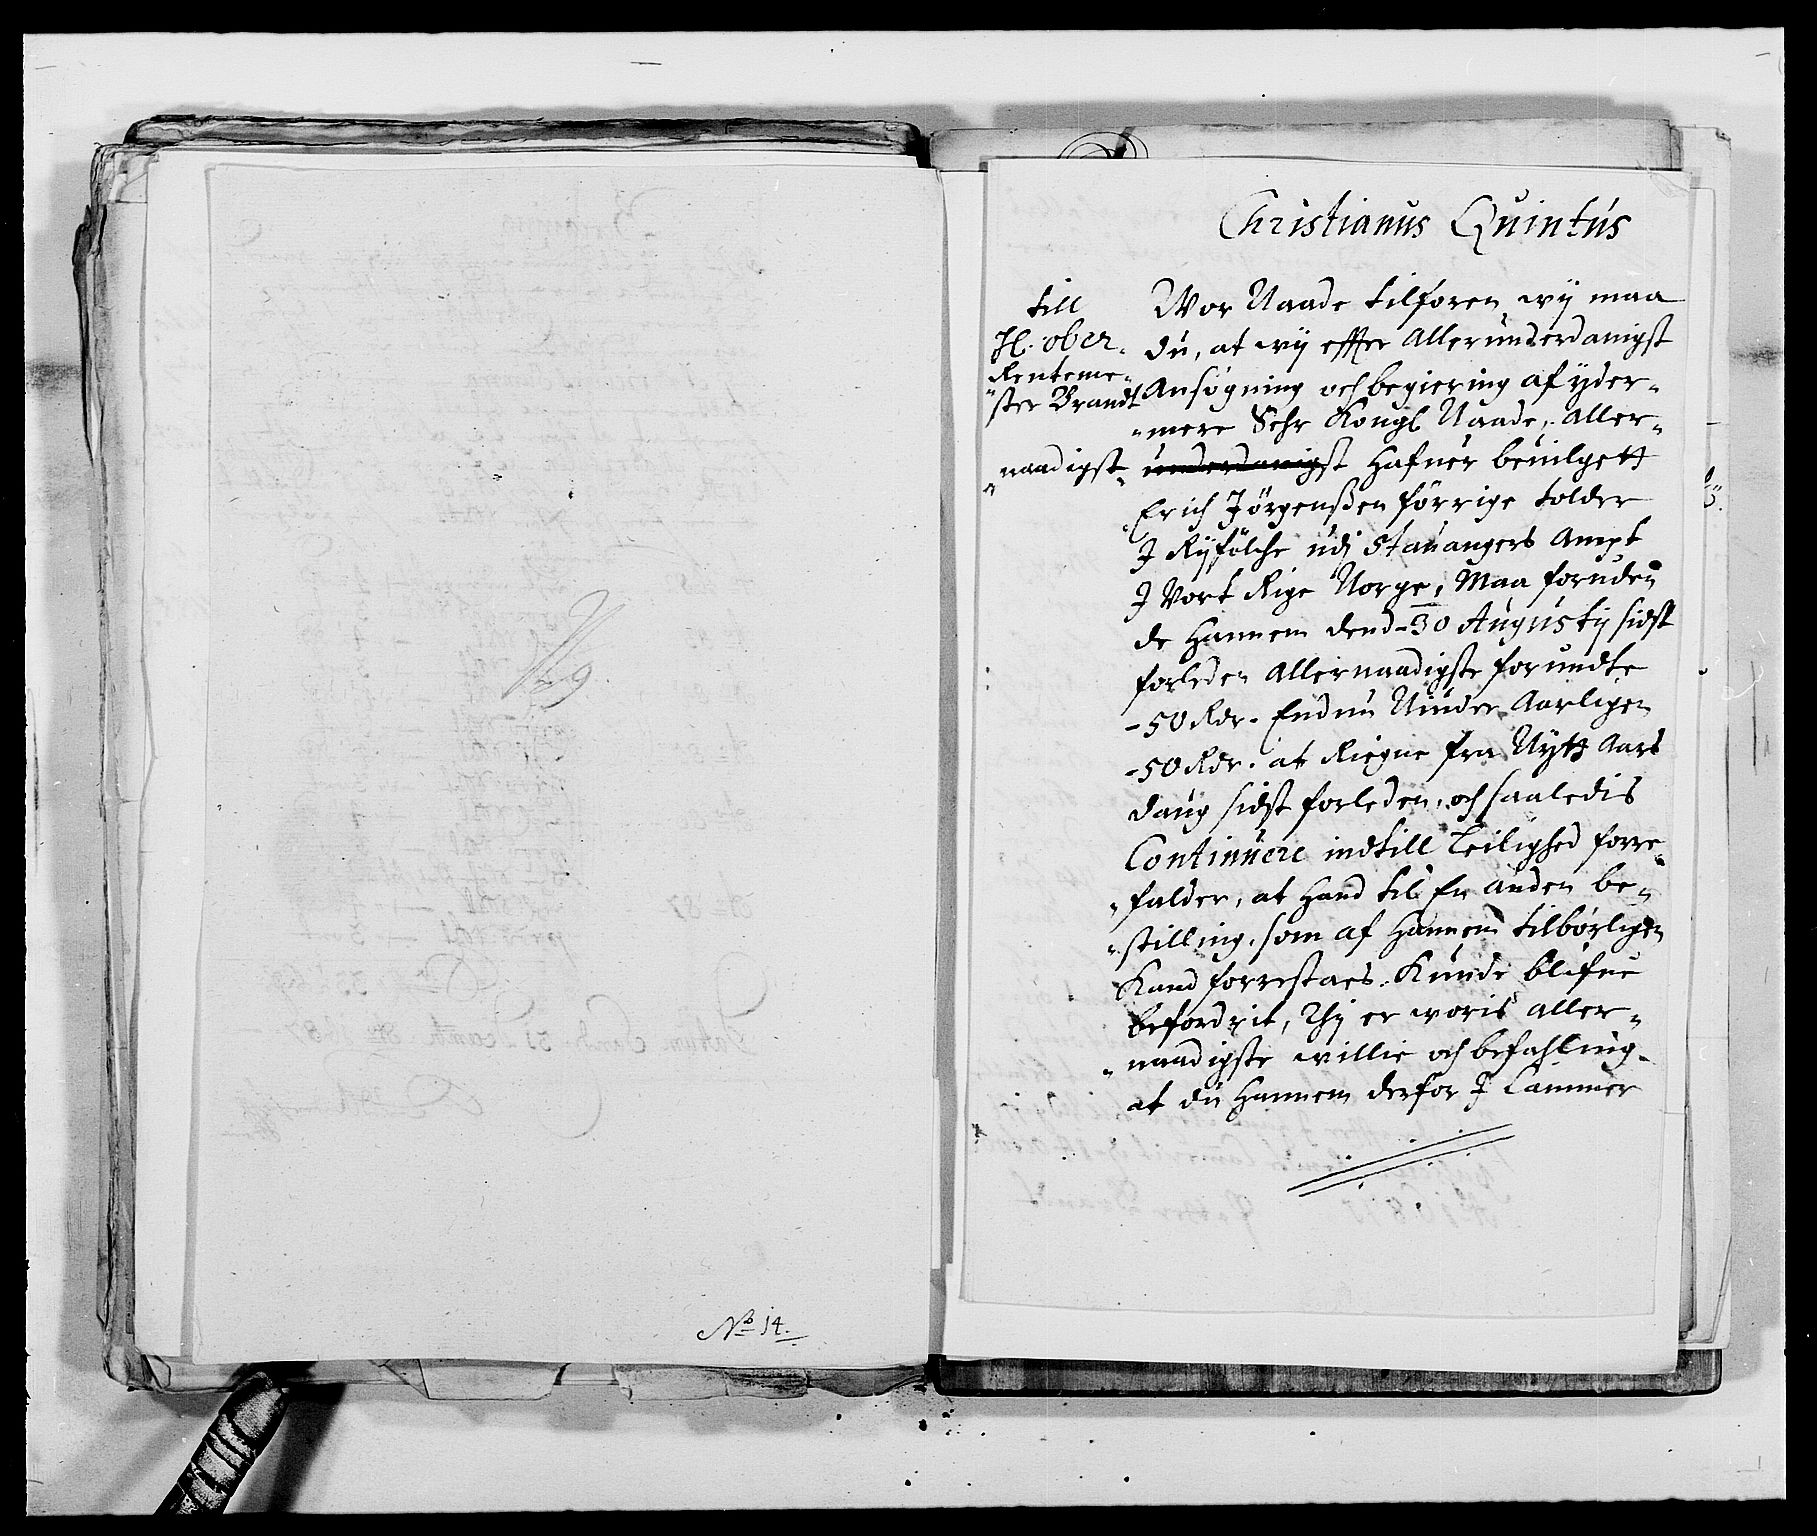 No 14.
Christianus Quintus
till
H. ober
Renteme-
ster Brandt
Wor Naade tilforen, wij maa
du, at wij effter Allerunderdanigst
Ansøgning och begiering af yder-
mere Sehr Kongl Naade, Aller-
naadigst underdanigst Hafuer beuilgett
Erich Jørgenßen förrige tolder
J Ryfölche udj Stauangers Ampt
J Vort Rige Norge, Maa foruden
de Hannem dend 30 Augustij sidst
forleden Allernaadigste forundte
-50 Rdr. Endnu Niuder Aarligen
-50 Rdr. at Riegne fra Nytt Aars
daug sidst forleden, och saaledis
Continuere indtill Leilighed forre-
falder, at Hand til En anden be-
stilling, som af Hannem tilbørligen
Kand forrestaes, Kunde blifue
befordrit, Thj er woris aller-
naadigste willie och befahling
at du Hannem derfor J Cammer